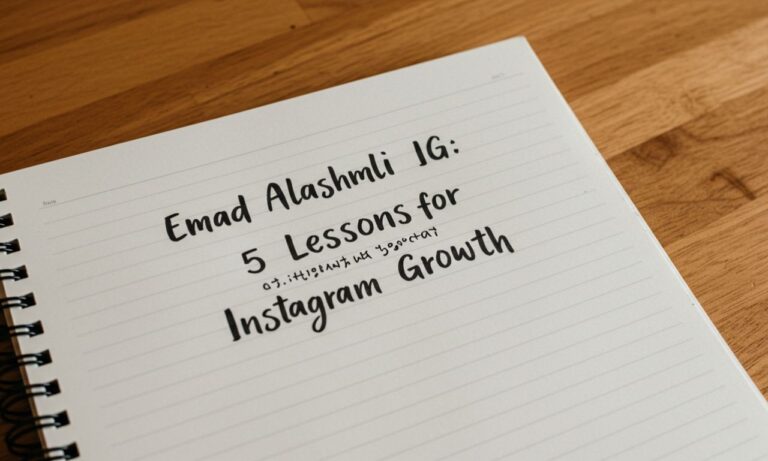 Emad Alashmli IG:
5 Lessons for
Instagram Growth